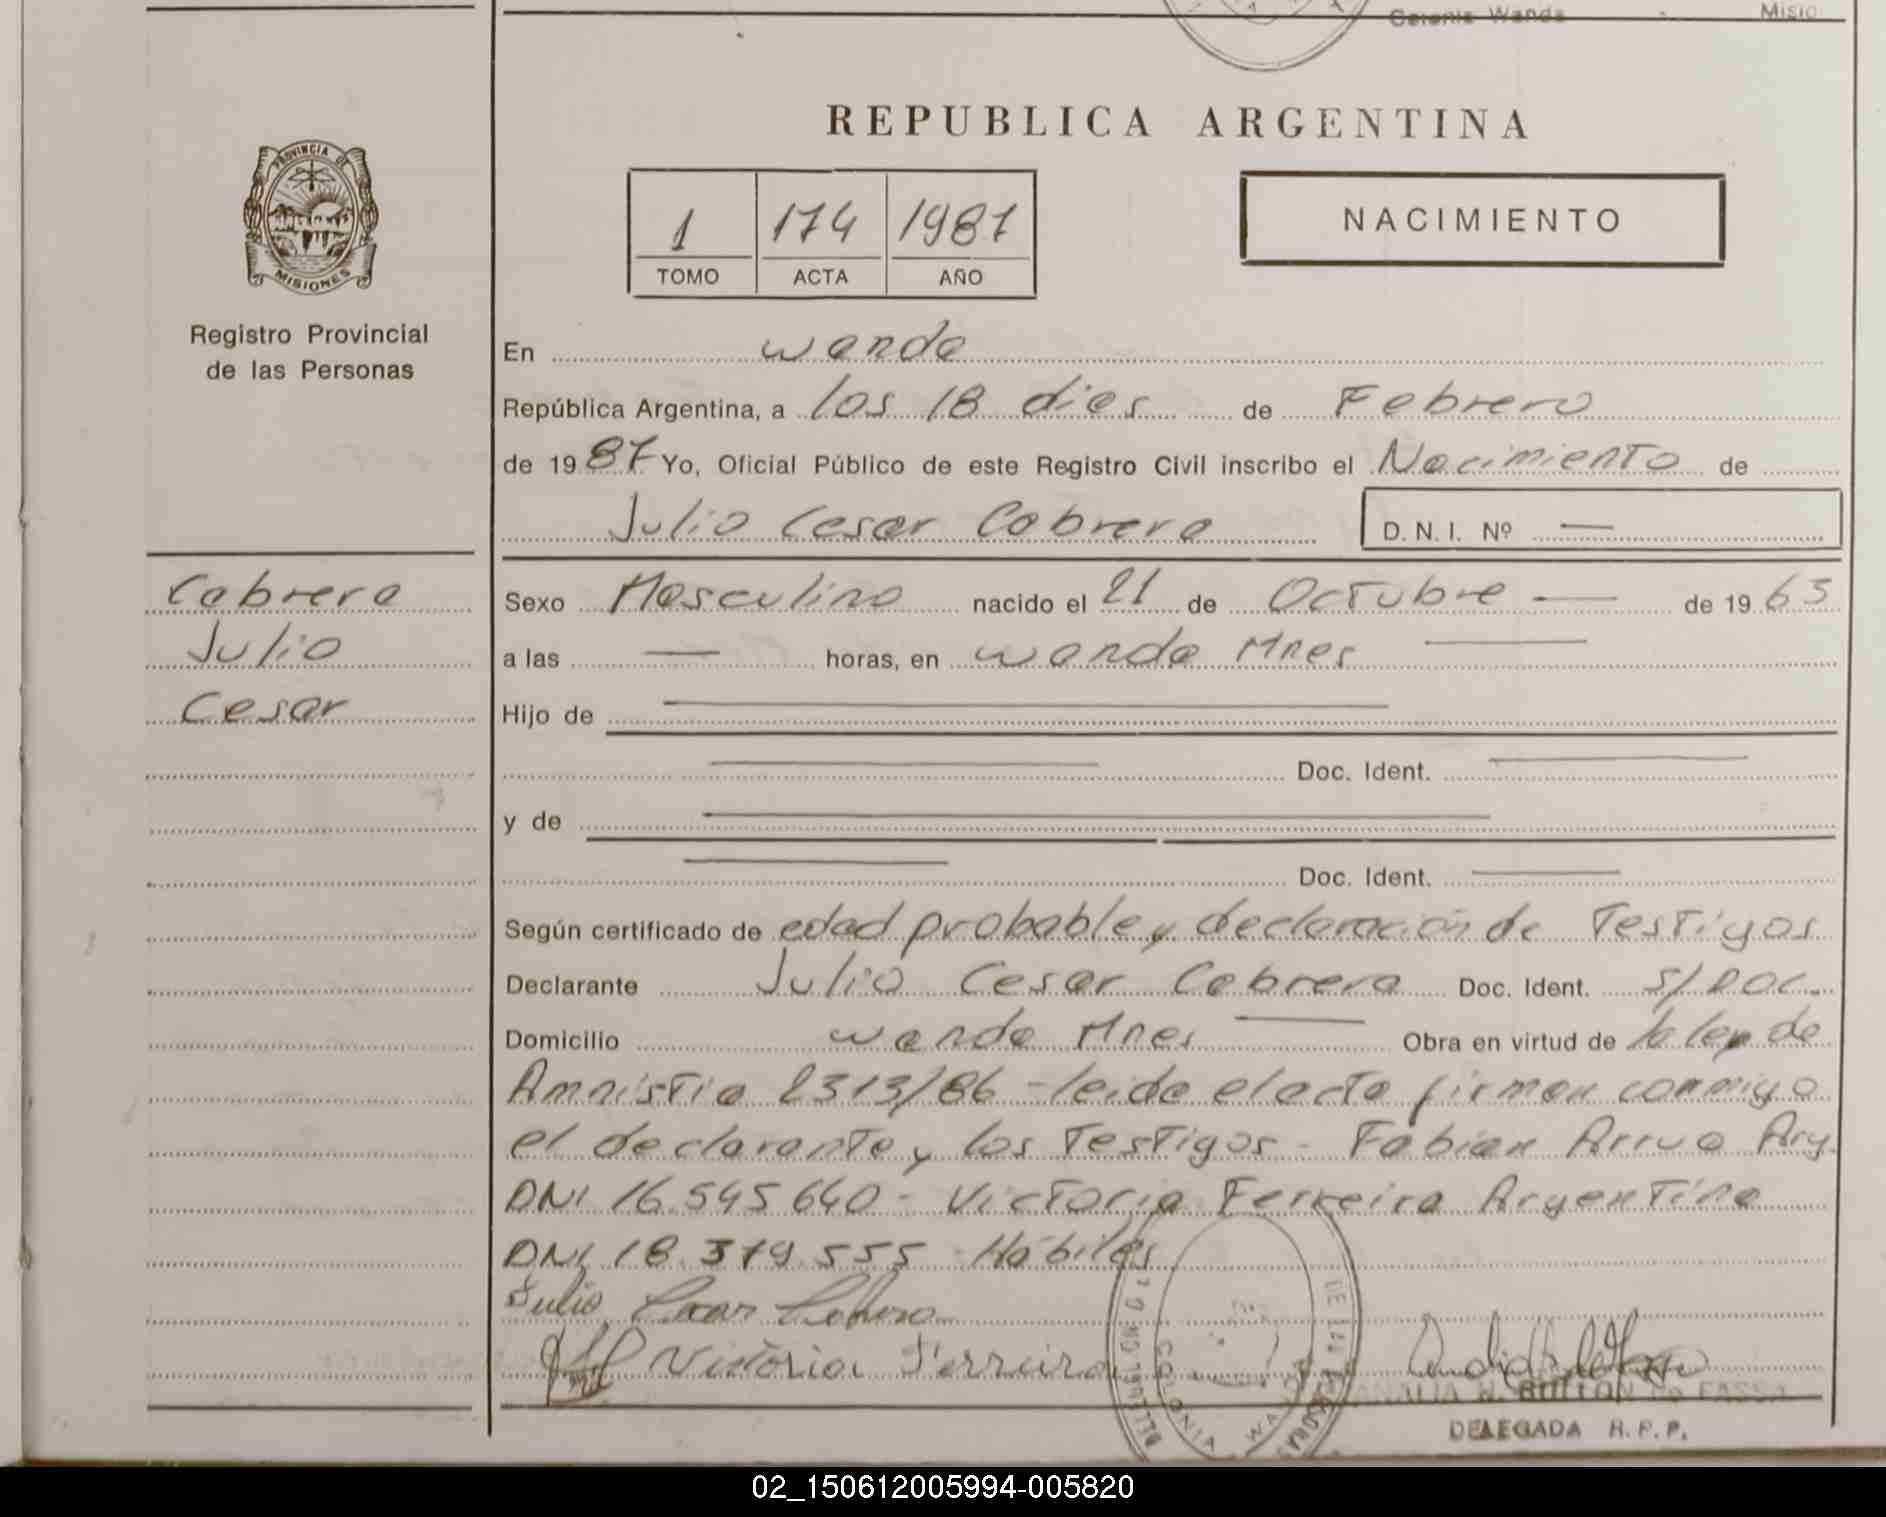 Colonia Wanda Misio
REPUBLICA ARGENTINA
PROVINCIA DE
MISIONES
1 174 1987
TOMO ACTA AÑO
NACIMIENTO
Registro Provincial
de las Personas
En wanda
República Argentina, a los 18 dias de Febrero
de 1987 Yo, Oficial Público de este Registro Civil inscribo el Nacimiento de
Julio Cesar Cabrera D. N. I. Nº —
Cabrera
Julio
Cesar
Sexo Masculino nacido el 21 de Octubre — de 1963
a las — horas, en wanda Mnes —
Hijo de —
— Doc. Ident. —
y de —
— Doc. Ident. —
Según certificado de edad probable y declaración de Testigos
Declarante Julio Cesar Cabrera Doc. Ident. S/DOC.
Domicilio wanda Mnes — Obra en virtud de la ley de
Amnistia 2313/86 - leida el acta firman conmigo
el declarante y los Testigos - Fabian Arrua Arg.
DNI 16.545.640 - Victoria Ferreira Argentina
DNI 18.379.555 - Hábiles
Julio Cesar Cabrera
Victoria Ferreira
COLONIA WA
DELEGADA R. P. P.
02_150612005994-005820